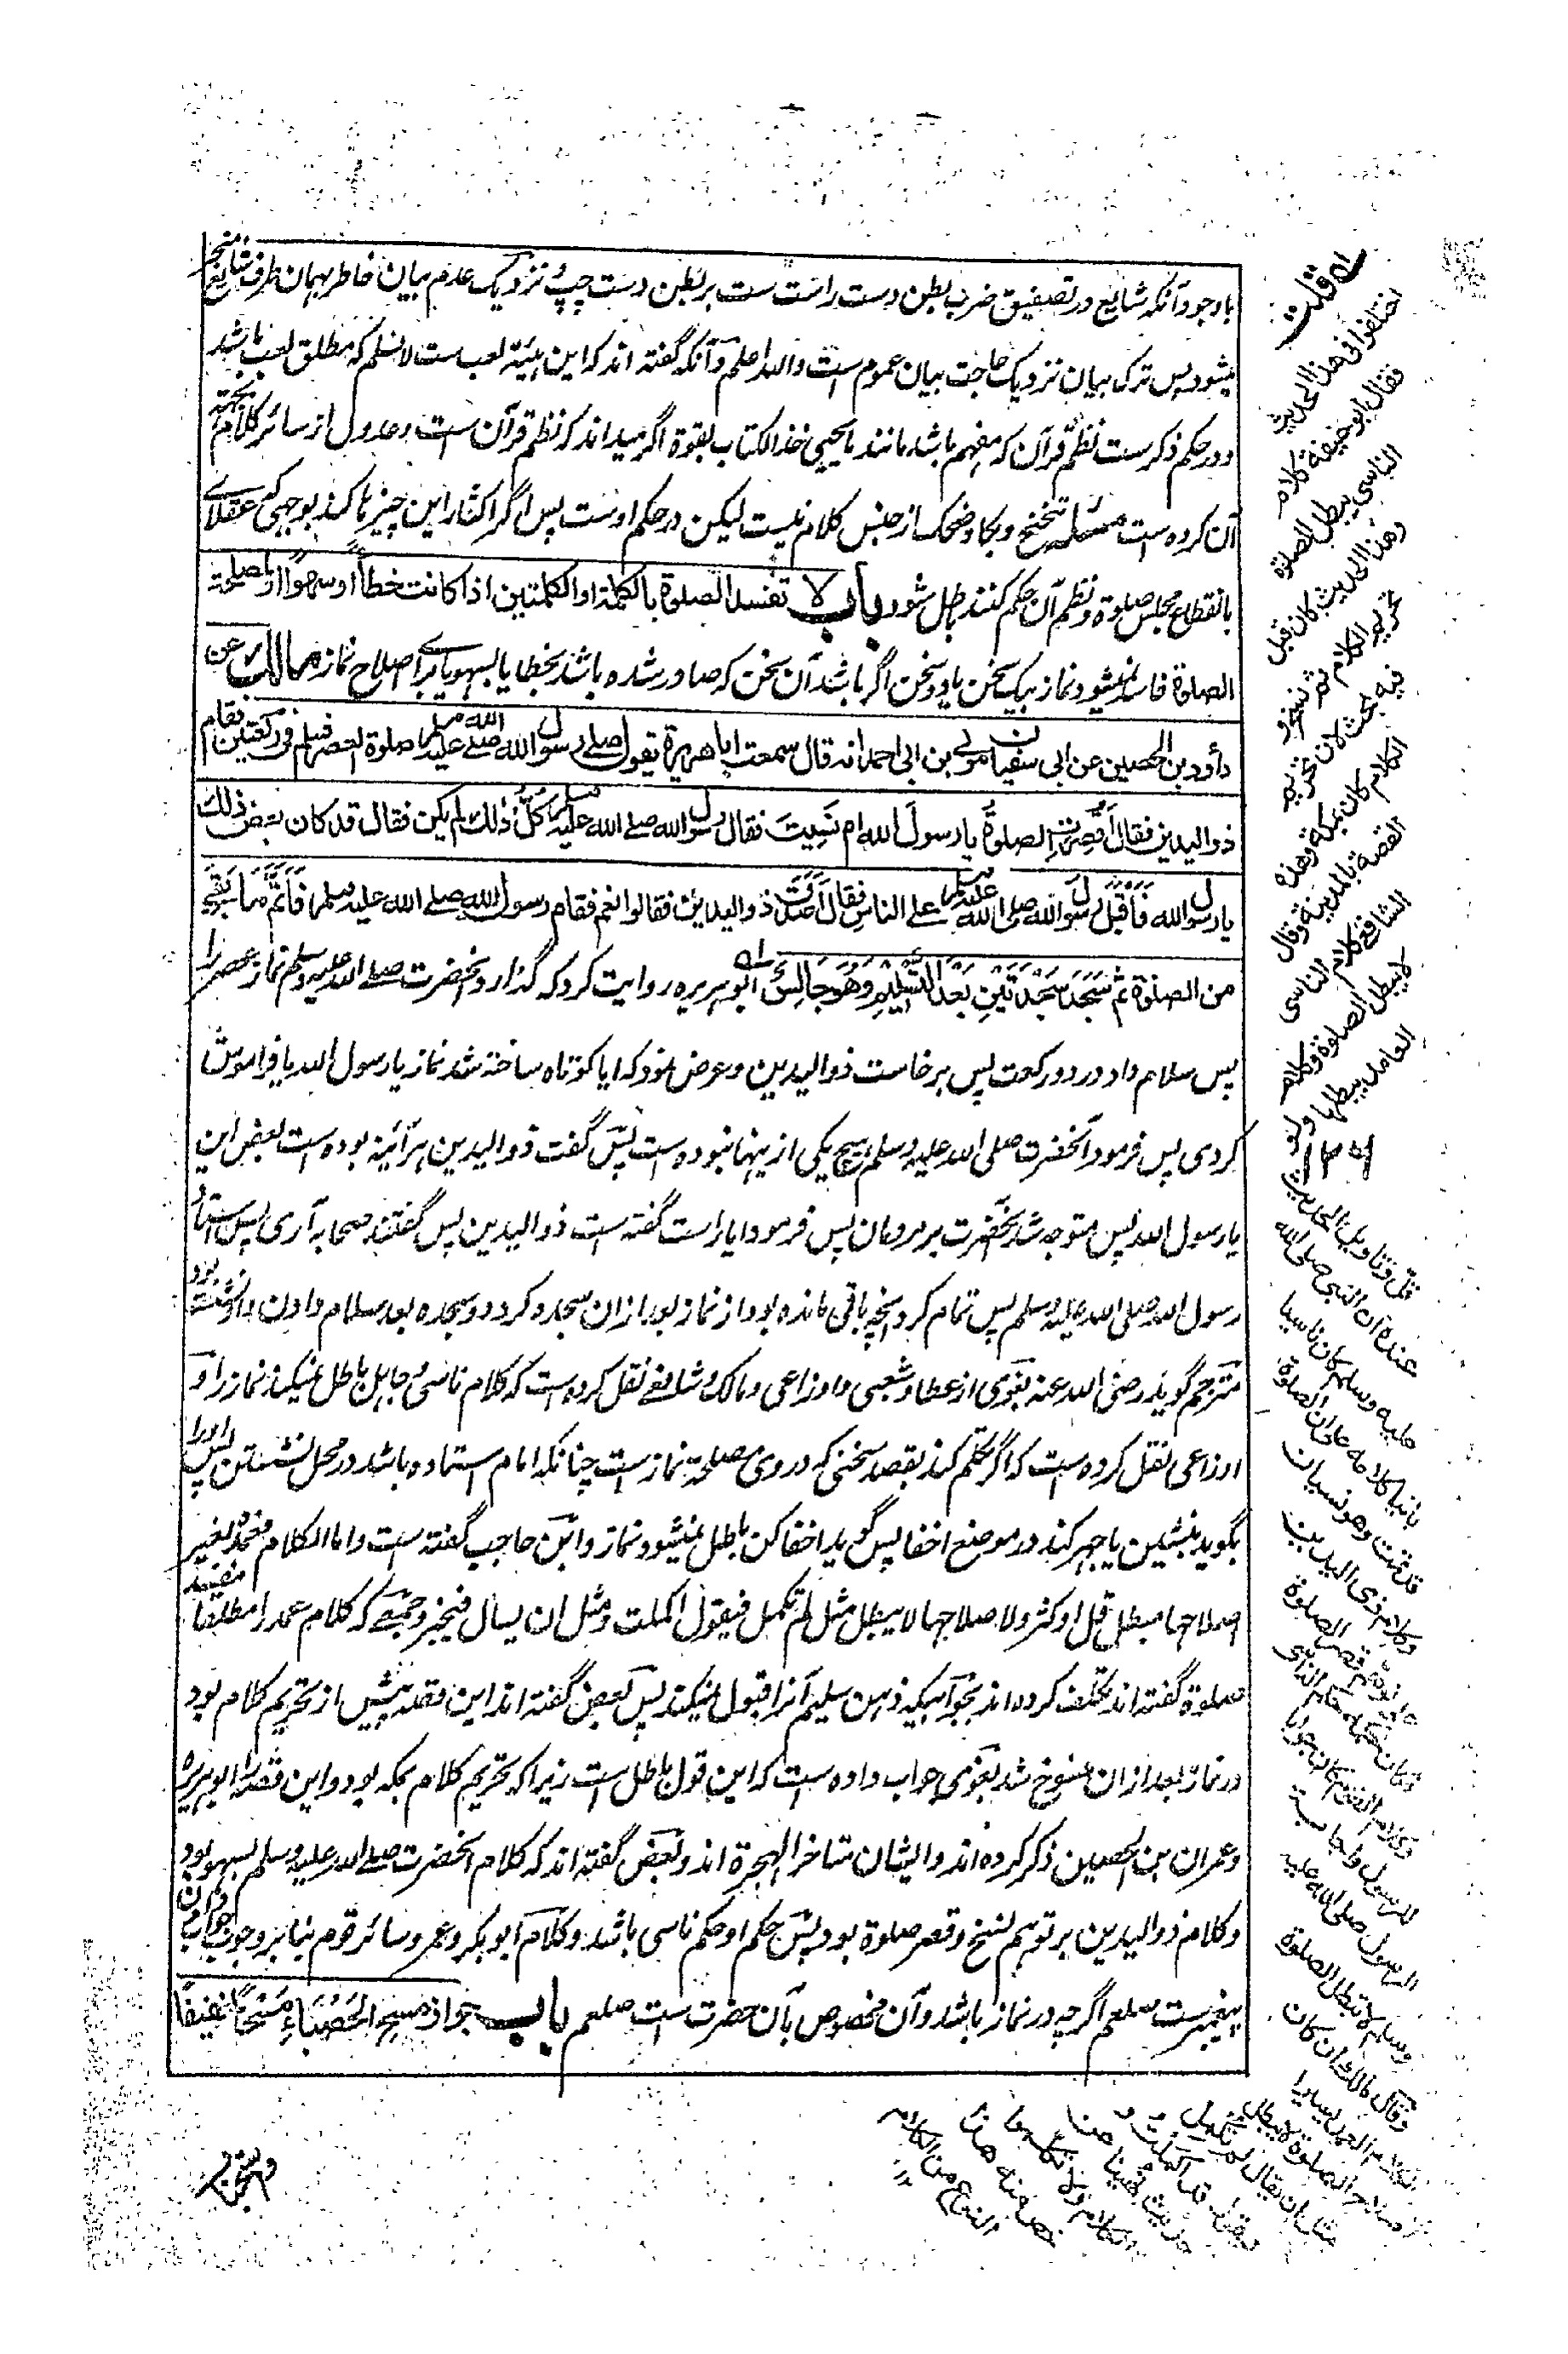 باوجود آنکه شایع در تصفیق ضرب بطن دست راست ست بر بطن دست چپ نزدیک عدم بیان خاطر بهمان طرف شایع منجر
میشود پس ترک بیان نزدیک حاجت بیان عموم است والله اعلم و آنکه گفته اند که این هیئة لعب ست لا نسلم که مطلق لعب باشد
و در حکم ذکر ست نظم قرآن که مفهم باشد مانند یا یحیی خذ الکتاب بقوة اگر میداند که نظم قرآن است و عدول از سائر کلام بجهة
آن کرده است مسئله تنحنح و بکا و ضحک از جنس کلام نیست لیکن در حکم اوست پس اگر اکثار این چیز ها کند بوجهی که عقلای
بانقطاع مجلس صلوة و نظم آن حکم کنند باطل شود باب لا تفسد الصلوة بالکلمة او الکلمتین اذا کانت خطأ او سهوا او باصلاح
الصلوة فاسد نمیشود نماز بیک سخن یا دو سخن اگر باشد آن سخن که صادر شده باشد بخطا یا بسهو یا برای اصلاح نماز مالك عن
داؤد بن الحصین عن ابی سفیان مولی بن ابی احمد انه قال سمعت ابا هریرة یقول صلی رسول الله صلی الله علیه وسلم صلوة العصر فسلم فی رکعتین فقام
ذو الیدین فقال أقصرت الصلوة یا رسول الله ام نسیت فقال رسول الله صلی الله علیه وسلم کل ذلك لم یکن فقال قد کان بعض ذلك
یا رسول الله فاقبل رسول الله صلی الله علیه وسلم علی الناس فقال أصدق ذو الیدین فقالوا نعم فقام رسول الله صلی الله علیه وسلم فاتم ما بقی
من الصلوة ثم سجد سجدتین بعد التسلیم وهو جالس ابو هریره روایت کرد که گذارد آنحضرت صلی الله علیه وسلم نماز عصر را
پس سلام داد در دو رکعت پس برخاست ذو الیدین و عرض نمود که ایا کوتاه ساخته شد نماز یا رسول الله یا فراموش
کردی پس فرمود آنحضرت صلی الله علیه وسلم هیچ یکی از ینها نبوده است پس گفت ذو الیدین هرآئینه بوده است بعض این
یا رسول الله پس متوجه شد آنحضرت بر مردمان پس فرمود ایا راست گفته است ذو الیدین پس گفتند صحابه آری پس استاد
رسول الله صلی الله علیه وسلم پس تمام کرد آنچه باقی مانده بود از نماز بعد ازان سجده کرد دو سجده بعد سلام دادن و او نشسته بود
مترجم گوید رضی الله عنه بغوی از عطا و شعبی و اوزاعی و مالک و شافعی نقل کرده است که کلام ناسی و جاهل باطل نمیکند نماز را و
اوزاعی نقل کرده است که اگر تکلم کند بقصد سخنی که در وی مصلحة نماز است چنانکه امام استاده باشد در محل نشستن پس او را
بگوید بنشین یا جهر کند در موضع اخفا پس گوید اخفا کن باطل نمیشود نماز و ابن حاجب گفته است و اما الکلام فعمده لغیر
اصلاحها مبطل قل او کثر ولاصلاحها لا یبطل مثل لم تکمل فیقول اکملت و مثل ان یسال فیخبر و جمیعی که کلام عمد را مطلقا مفسد
صلوة گفته اند تکلف کرده اند بجوابیکه ذهن سلیم آنرا قبول نمیکند پس بعض گفته اند این قصه پیش از تحریم کلام بود
در نماز بعد ازان منسوخ شد بغوی جواب داده است که این قول باطل است زیرا که تحریم کلام بمکه بود و این قصه را ابو هریره
و عمران بن الحصین ذکر کرده اند و ایشان متاخر الهجرة اند و بعض گفته اند که کلام آنحضرت صلی الله علیه وسلم بسهو بود
و کلام ذو الیدین بر توهم نسخ و قصر صلوة بود پس حکم او حکم ناسی باشد و کلام ابو بکر و عمر و سائر قوم بنا بر وجوب جواب
پیغمبر ست صلعم اگرچه در نماز باشد و آن مخصوص بآن حضرت است صلعم باب جواز مسح الحصباء مسحا خفیفا
قلت
اختلفوا فی هذا الحدیث
فقال ابو حنیفة کلام
الناسی یبطل الصلوة
وهذا الحدیث کان قبل
تحریم الکلام ثم نسخ و
فیه بحث لان تحریم
الکلام کان بمکة وهذه
القصة بالمدینة وقال
الشافعی کلام الناسی
لا یبطل الصلوة وکلام
العامد یبطلها ولو
۱۲۹
قل وتاویل الحدیث
عنده ان النبی صلی الله
علیه وسلم کان ناسیا
بانیا کلامه علی ان الصلوة
قد تمت وهو نسیان
وکلام ذی الیدین
علی توهم قصر الصلوة
فکان حکمه حکم الناسی
وکلام القوم کان جوابا
للرسول واجابة
الرسول صلی الله علیه
وسلم لا تبطل الصلوة
وقال مالك ان کان
کلام العمد یسیرا
لاصلاح الصلوة لا یبطل
مثل ان یقال لم تکمل
فیقول قد اکملت و
النوع من الکلام